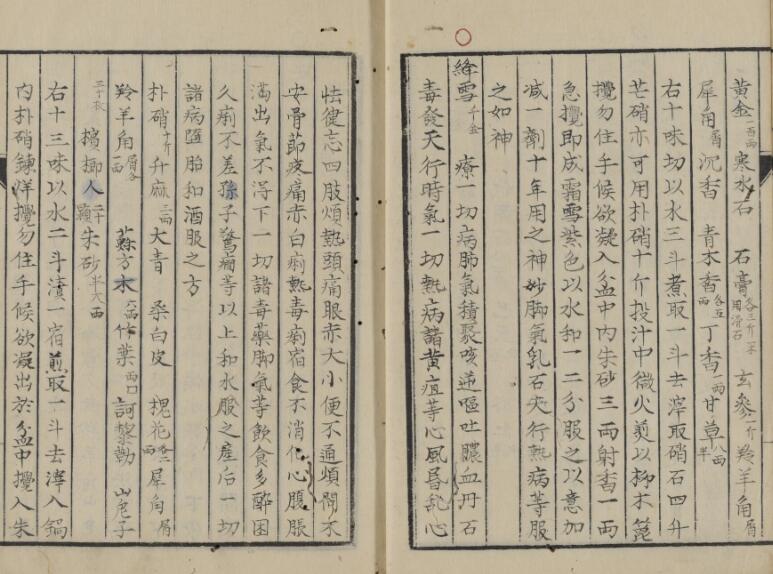 黄金一百兩 寒水石 石膏各三斤一本用滑石 玄參一斤 羚羊角屑
犀角屑 沉香 青木香各五兩 丁香一兩 甘草八兩
右十味切以水三斗煮取一斗去滓取硝石四升
芒硝亦可用朴硝十斤投汁中微火煎以柳木篦
攪勿住手候欲凝入盆中内朱砂三兩射香一兩
急攪即成霜雪紫色以水和一二分服之以意加
减一劑十年用之神妙脚氣乳石天行熱病等服
之如神
絳雪千金 療一切病肺氣積聚咳逆嘔吐膿血丹石
毒發天行時氣一切熱病諸黄疸等心風昏乱心
怯健忘四肢煩熱頭痛眼赤大小便不通煩悶不
安骨節疼痛赤白痢熱毒痢宿食不消化心腹脹
滿出氣不得下一切諸毒藥脚氣等飲食多醉困
久痢不差孫子驚癇等以上和水服之産后一切
諸病墮胎和酒服之方
朴硝十斤 升麻三兩 大青 桑白皮 槐花各二兩 犀角屑
羚羊角屑各一兩 蘇方木六兩 竹葉兩口 訶黎勒 山梔子
三十枚 檳榔人二十顆 朱砂半大兩
右十三味以水二斗漬一宿煎取一斗去滓入鍋
内朴硝鍊烊攪勿住手候欲凝出於盆中攪入朱